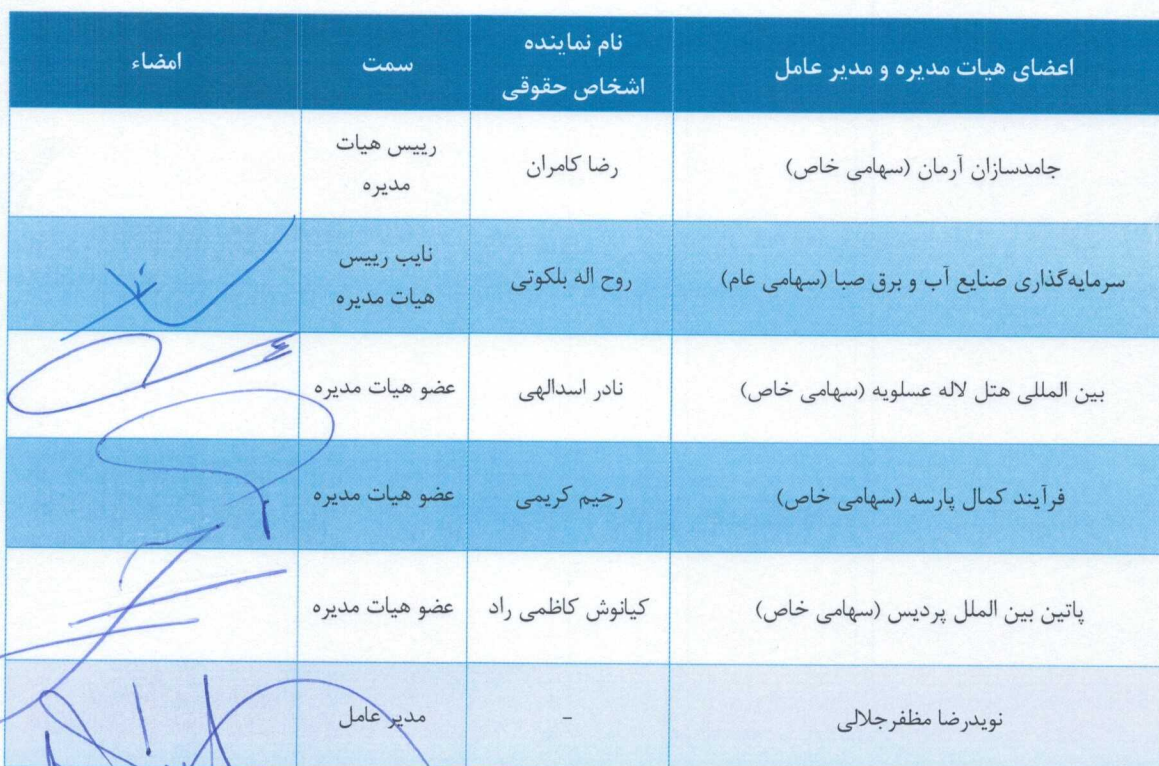 اعضای هیات مدیره و مدیر عامل
نام نماینده
اشخاص حقوقی
سمت
امضاء
جامدسازان آرمان (سهامی خاص)
رضا کامران
رییس هیات
مدیره
سرمایه‌گذاری صنایع آب و برق صبا (سهامی عام)
روح اله بلکوتی
نایب رییس
هیات مدیره
بین المللی هتل لاله عسلویه (سهامی خاص)
نادر اسدالهی
عضو هیات مدیره
فرآیند کمال پارسه (سهامی خاص)
رحیم کریمی
عضو هیات مدیره
پاتین بین الملل پردیس (سهامی خاص)
کیانوش کاظمی راد
عضو هیات مدیره
نویدرضا مظفرجلالی
-
مدیر عامل